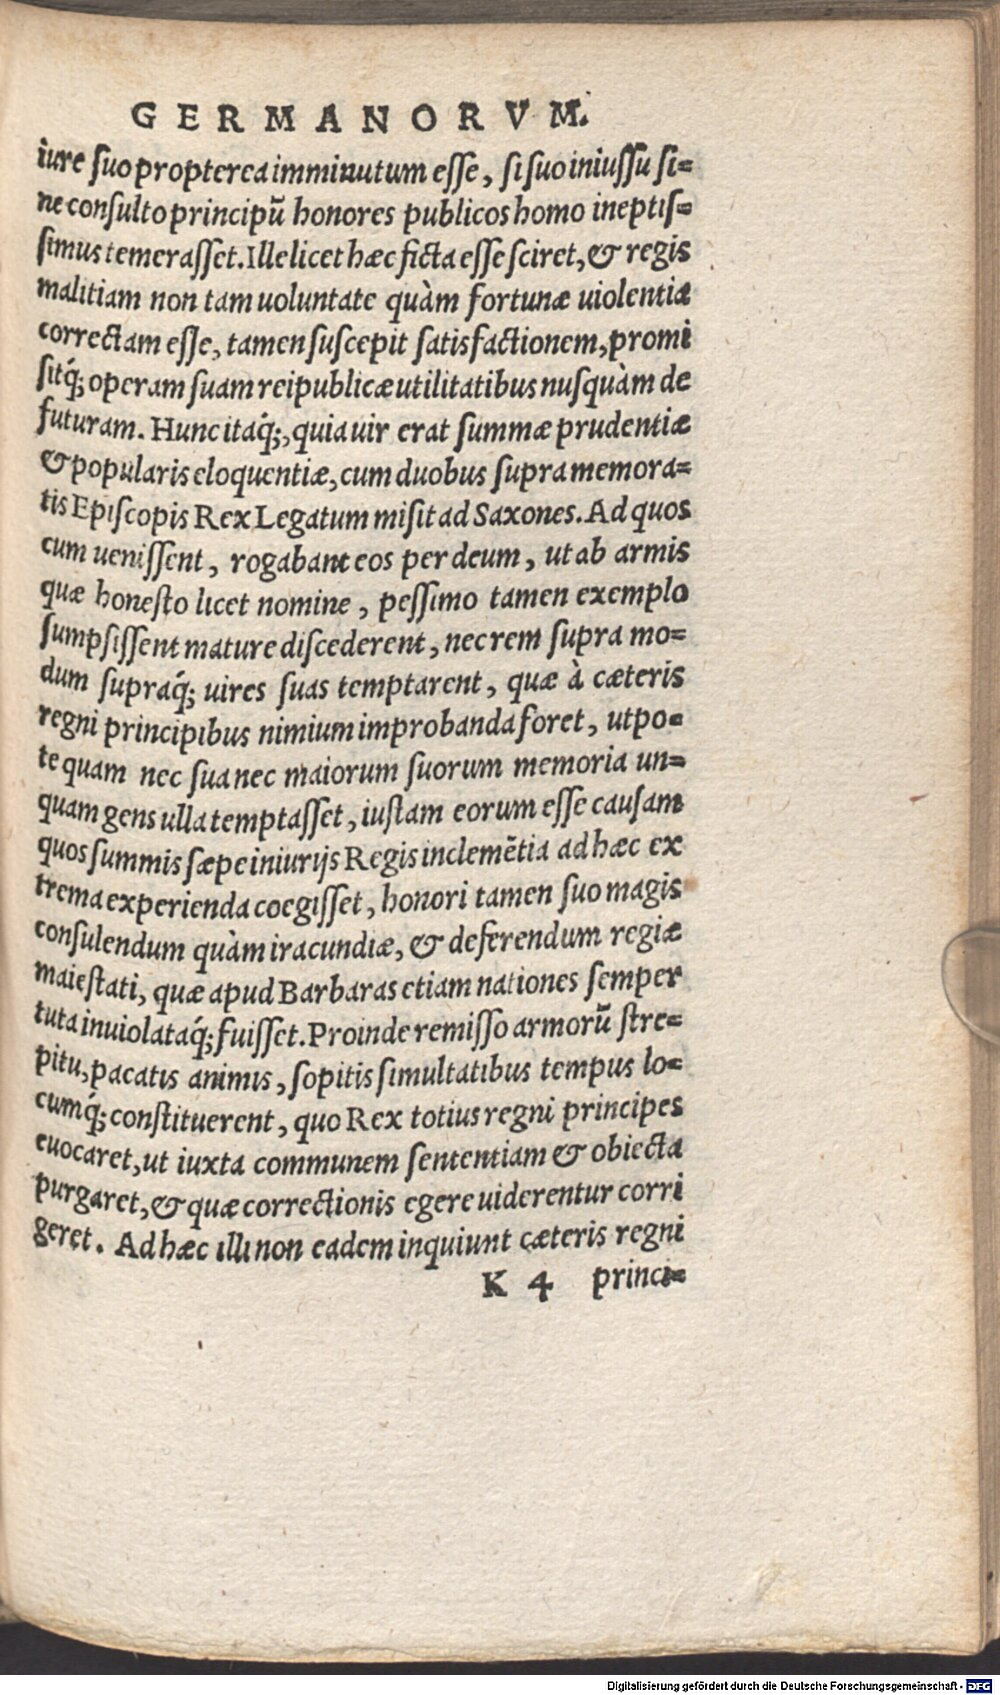 GERMANORVM.
iure suo propterea imminutum esse, si suo iniussu si=
ne consulto principũ honores publicos homo ineptis=
simus temerasset. Ille licet hæc ficta esse sciret, & regis
malitiam non tam uoluntate quàm fortunæ uiolentia
correctam esse, tamen suscepit satisfactionem, promi
sitq́; operam suam reipublicæ utilitatibus nusquàm de
futuram. Hunc itaq́;, quia uir erat summæ prudentiæ
& popularis eloquentiæ, cum duobus supra memora=
tis Episcopis Rex Legatum misit ad Saxones. Ad quos
cum uenissent, rogabant eos per deum, ut ab armis
quæ honesto licet nomine, pessimo tamen exemplo
sumpsissent mature discederent, nec rem supra mo=
dum supraq́; uires suas temptarent, quæ à cæteris
regni principibus nimium improbanda foret, utpo=
te quam nec sua nec maiorum suorum memoria un=
quam gens ulla temptasset, iustam eorum esse causam
quos summis sæpe iniurijs Regis inclemẽtia ad hæc ex
trema experienda coegisset, honori tamen suo magis
consulendum quàm iracundiæ, & deferendum regiæ
maiestati, quæ apud Barbaras etiam nationes semper
tuta inuiolataq́; fuisset. Proinde remisso armorũ stre=
pitu, pacatis animis, sopitis simultatibus tempus lo=
cumq́; constituerent, quo Rex totius regni principes
euocaret, ut iuxta communem sententiam & obiecta
purgaret, & quæ correctionis egere uiderentur corri
geret. Ad hæc illi non eadem inquiunt cæteris regni
K 4 princi=
Digitalisierung gefördert durch die Deutsche Forschungsgemeinschaft - DFG